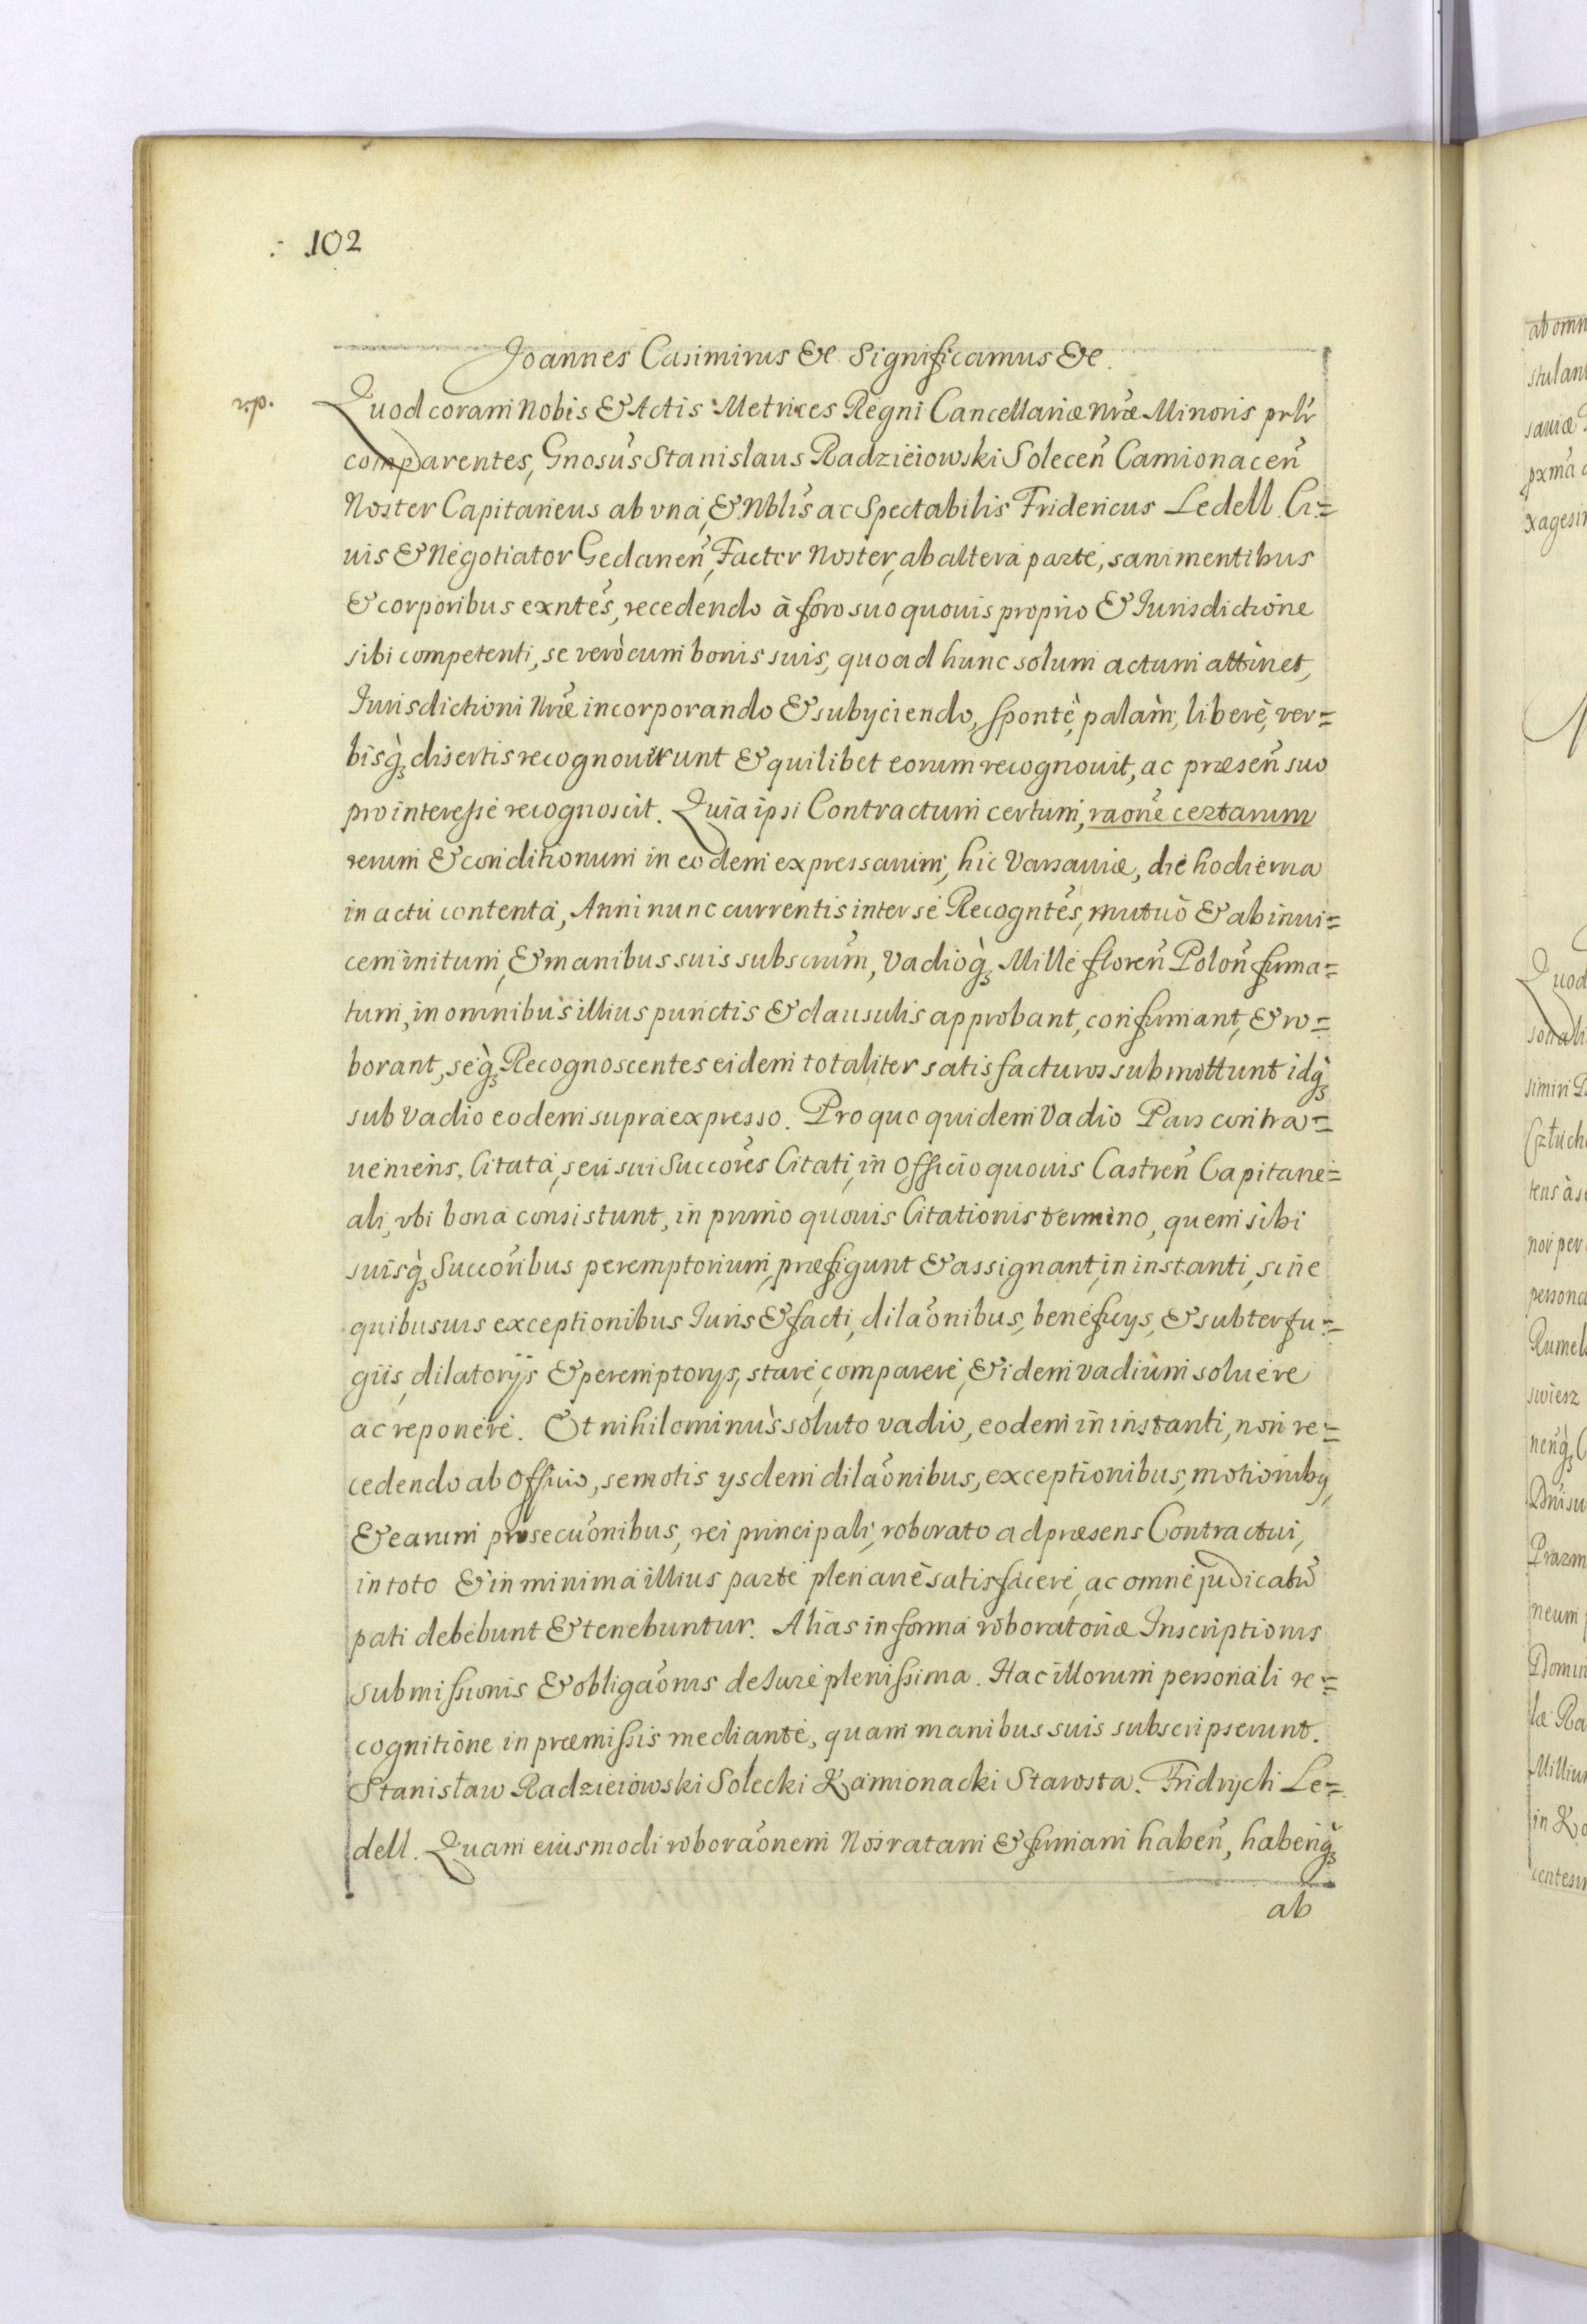 102
Joannes Casimirus &c Significamus &c.
r.p.
Quod coram Nobis & Actis Metrices Regni Cancellariæ Nræ Minoris prlr
comparentes, Gnosus Stanislaus Radzieiowski Solecen̄ Camionacen̄
Noster Capitaneus ab vna, & Nblis ac Spectabilis Fridericus Ledell Ci=
uis & Negotiator Gedanen̄, Factor Noster, ab altera parte, sani mentibus
& corporibus exntes, recedendo à foro suo quouis proprio & Jurisdictione
sibi competenti, se verò cum bonis suis, quoad hunc solum actum attinet,
Jurisdictioni Nræ incorporando & subyciendo, spontè, palàm, liberè, ver=
bisq̀ disertis recognouerunt & quilibet eorum recognouit, ac præsen̄ suo
pro interesse recognoscit. Quia ipsi Contractum certum, raone certarum
rerum & conditionum in eodem expressarum, hic Varsauiæ, die hodierna
in actu contenta, Anni nunc currentis inter se Recogntes, mutuò & ab inui=
cem initum, & manibus suis subscrum, Vadioq̀ Mille floren̄ Polon̄ firma=
tum, in omnibus illius punctis & clausulis approbant, confirmant, & ro=
borant, seq̀ Recognoscentes eidem totaliter satisfacturos submittunt idq̀
sub vadio eodem supra expresso. Pro quo quidem Vadio Pars contra=
ueniens, Citata, seu sui Succores Citati, in Officio quouis Castren̄ Capitane=
ali, vbi bona consistunt, in primo quouis Citationis termino, quem sibi
suisq̀ Succoribus peremptorium, præfigunt & assignant, in instanti, sine
quibusuis exceptionibus Juris & facti, dilaonibus, beneficys, & subterfu=
giis, dilatorijs & peremptorys, stare, comparere, & idem vadium soluere
ac reponere. Et nihilominùs soluto vadio, eodem in instanti, non re=
cedendo ab Officio, semotis ysdem dilaonibus, exceptionibus, motionibꝯ,
& earum prosecuonibus, rei principali, roborato ad præsens Contractui,
in toto & in minima illius parte plenariè satisfacere, ac omne judicatū
pati debebunt & tenebuntur. Alias in forma roboratoriæ Inscriptionis
submissionis & obligaonis de Jure plenissima. Hac illorum personali re=
cognitione in præmissis mediante, quam manibus suis subscripserunt.
Stanisław Radzieiowski Solecki Kamionacki Starosta. Fridrych Le=
dell. Quam eiusmodi roboraonem Nos ratam & firmam haben̄, haberiq̀
ab